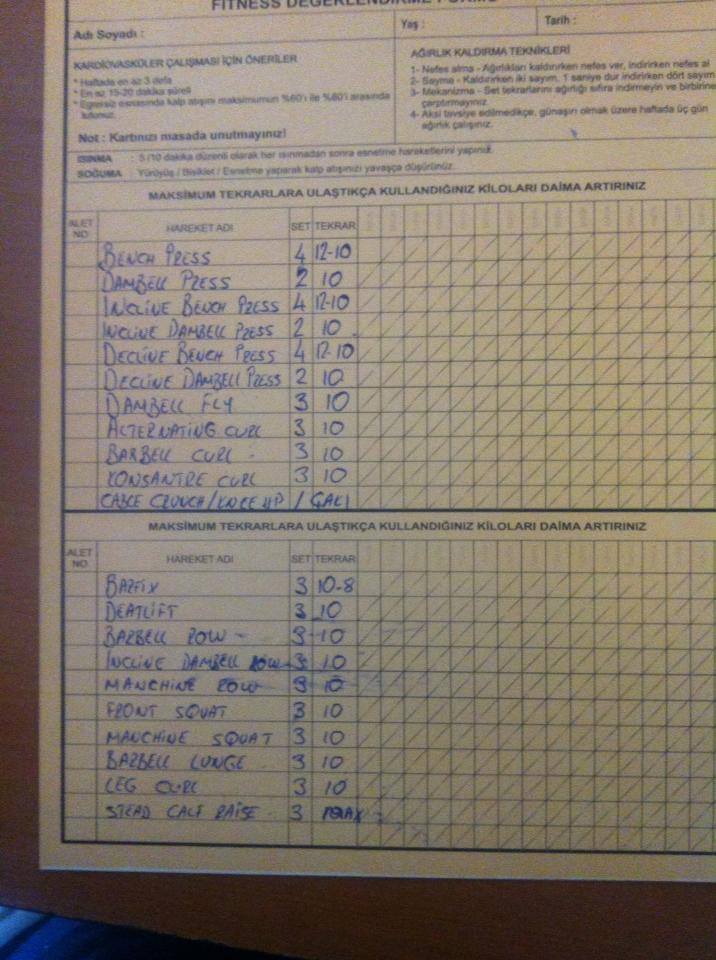 FITNESS DEĞERLENDİRME FORMU
Adı Soyadı :
Yaş :
Tarih :
KARDİOVASKÜLER ÇALIŞMASI İÇİN ÖNERİLER
* Haftada en az 3 defa
* En az 15-20 dakika süreli
* Egzersiz esnasında kalp atışını maksimumun %60'ı ile %80'i arasında
tutunuz.
Not : Kartınızı masada unutmayınız!
AĞIRLIK KALDIRMA TEKNİKLERİ
1- Nefes alma - Ağırlıkları kaldırırken nefes ver, indirirken nefes al
2- Sayma - Kaldırırken iki sayım, 1 saniye dur indirirken dört sayım
3- Mekanizma - Set tekrarlarını ağırlığı sıfıra indirmeyin ve birbirine
çarptırmayınız.
4- Aksi tavsiye edilmedikçe, günaşırı olmak üzere haftada üç gün
ağırlık çalışınız.
ISINMA : 5 /10 dakika düzenli olarak her ısınmadan sonra esnetme hareketlerini yapınız.
SOĞUMA : Yürüyüş / Bisiklet / Esnetme yaparak kalp atışınızı yavaşça düşürünüz.
MAKSİMUM TEKRARLARA ULAŞTIKÇA KULLANDIĞINIZ KİLOLARI DAİMA ARTIRINIZ
ALET NO HAREKET ADI SET TEKRAR
BENCH PRESS 4 12-10
DAMBELL PRESS 2 10
INCLINE BENCH PRESS 4 12-10
INCLINE DAMBELL PRESS 2 10
DECLINE BENCH PRESS 4 12-10
DECLINE DAMBELL PRESS 2 10
DAMBELL FLY 3 10
ALTERNATING CURL 3 10
BARBELL CURL - 3 10
KONSANTRE CURL 3 10
CABLE CRUNCH/KNEE UP /
MAKSİMUM TEKRARLARA ULAŞTIKÇA KULLANDIĞINIZ KİLOLARI DAİMA ARTIRINIZ
ALET NO HAREKET ADI SET TEKRAR
BARFIX 3 10-8
DEATLIFT 3 10
BARBELL ROW - 3-10
INCLINE DAMBELL ROW 3 10
MANCHINE ROW 3 10
FRONT SQUAT 3 10
MANCHINE SQUAT 3 10
BARBELL LUNGE 3 10
LEG CURL 3 10
STEAD CALF RAISE - 3 MAX